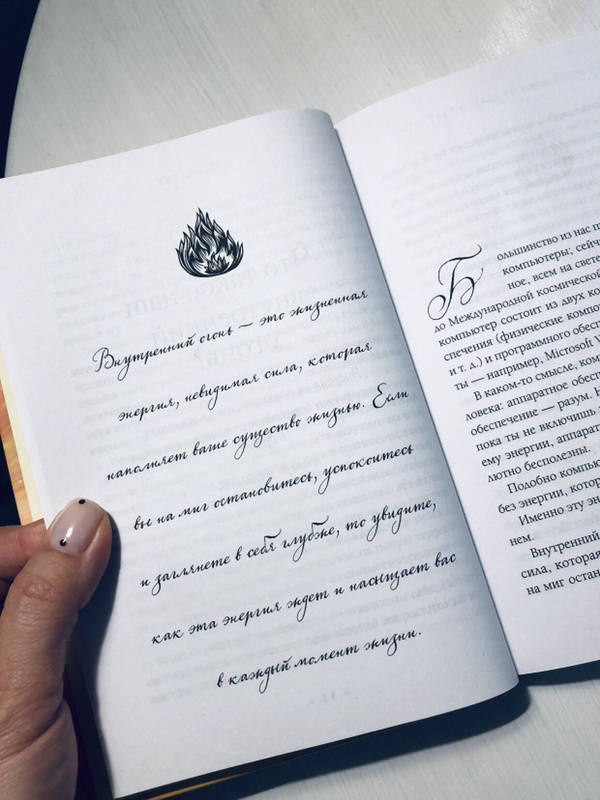 Внутренний огонь — это жизненная
энергия, невидимая сила, которая
наполняет ваше существо жизнью. Если
вы на миг остановитесь, успокоитесь
и заглянете в себя глубже, то увидите,
как эта энергия ждет и насыщает вас
в каждый момент жизни.
Большинство из нас
компьютеры; сейч
ное, всем на свете
до Международной космической
компьютер состоит из двух ко
спечения (физические компо
и т. д.) и программного обесп
ты — например, Microsoft W
В каком-то смысле, ком
ловека: аппаратное обесп
обеспечение — разум. Н
пока ты не включишь
ему энергии, аппарат
лютно бесполезны.
Подобно компью
без энергии, котор
Именно эту эн
нем.
Внутренний
сила, которая
на миг остан